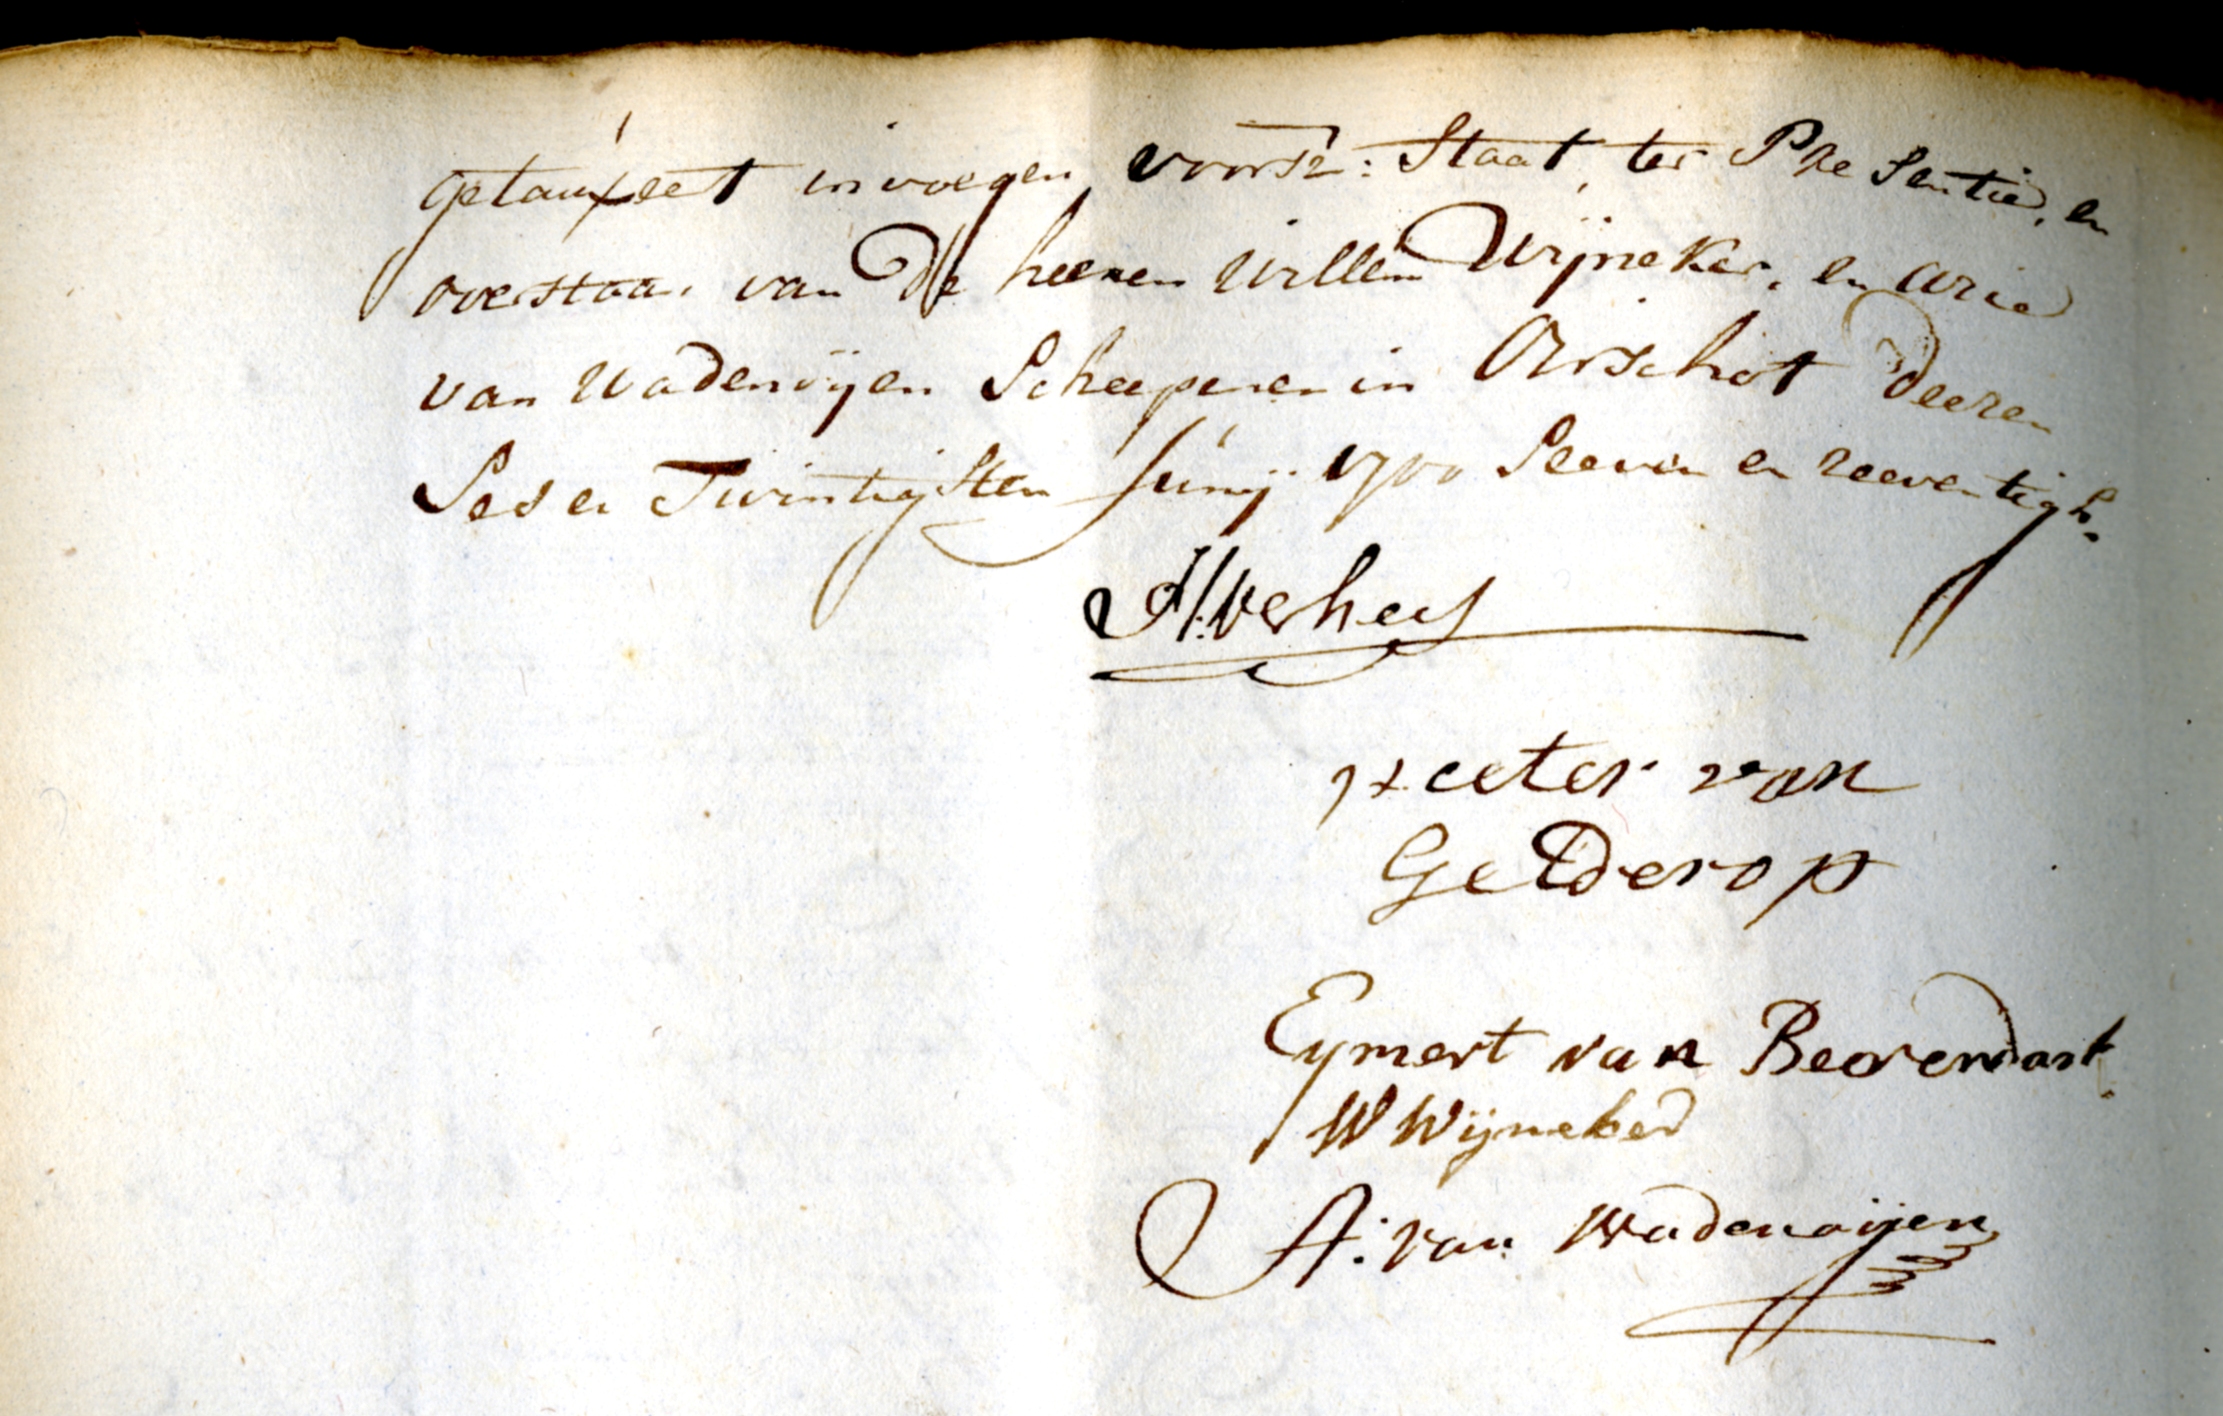 getauxeert invoegen voorsz: Staat, ter Presentie, en
overstaan van De heeren Willem Wijneker, en Arie
van Wadenoijen Scheepenen in Oirschot deezen
Ses en Twintigsten Junij 1700 Seeven en zeeventigh.
H: verhees
peeter van
Gelderop
Eymert van Beerendonk
W Wijneker
A: van Wadenoijen